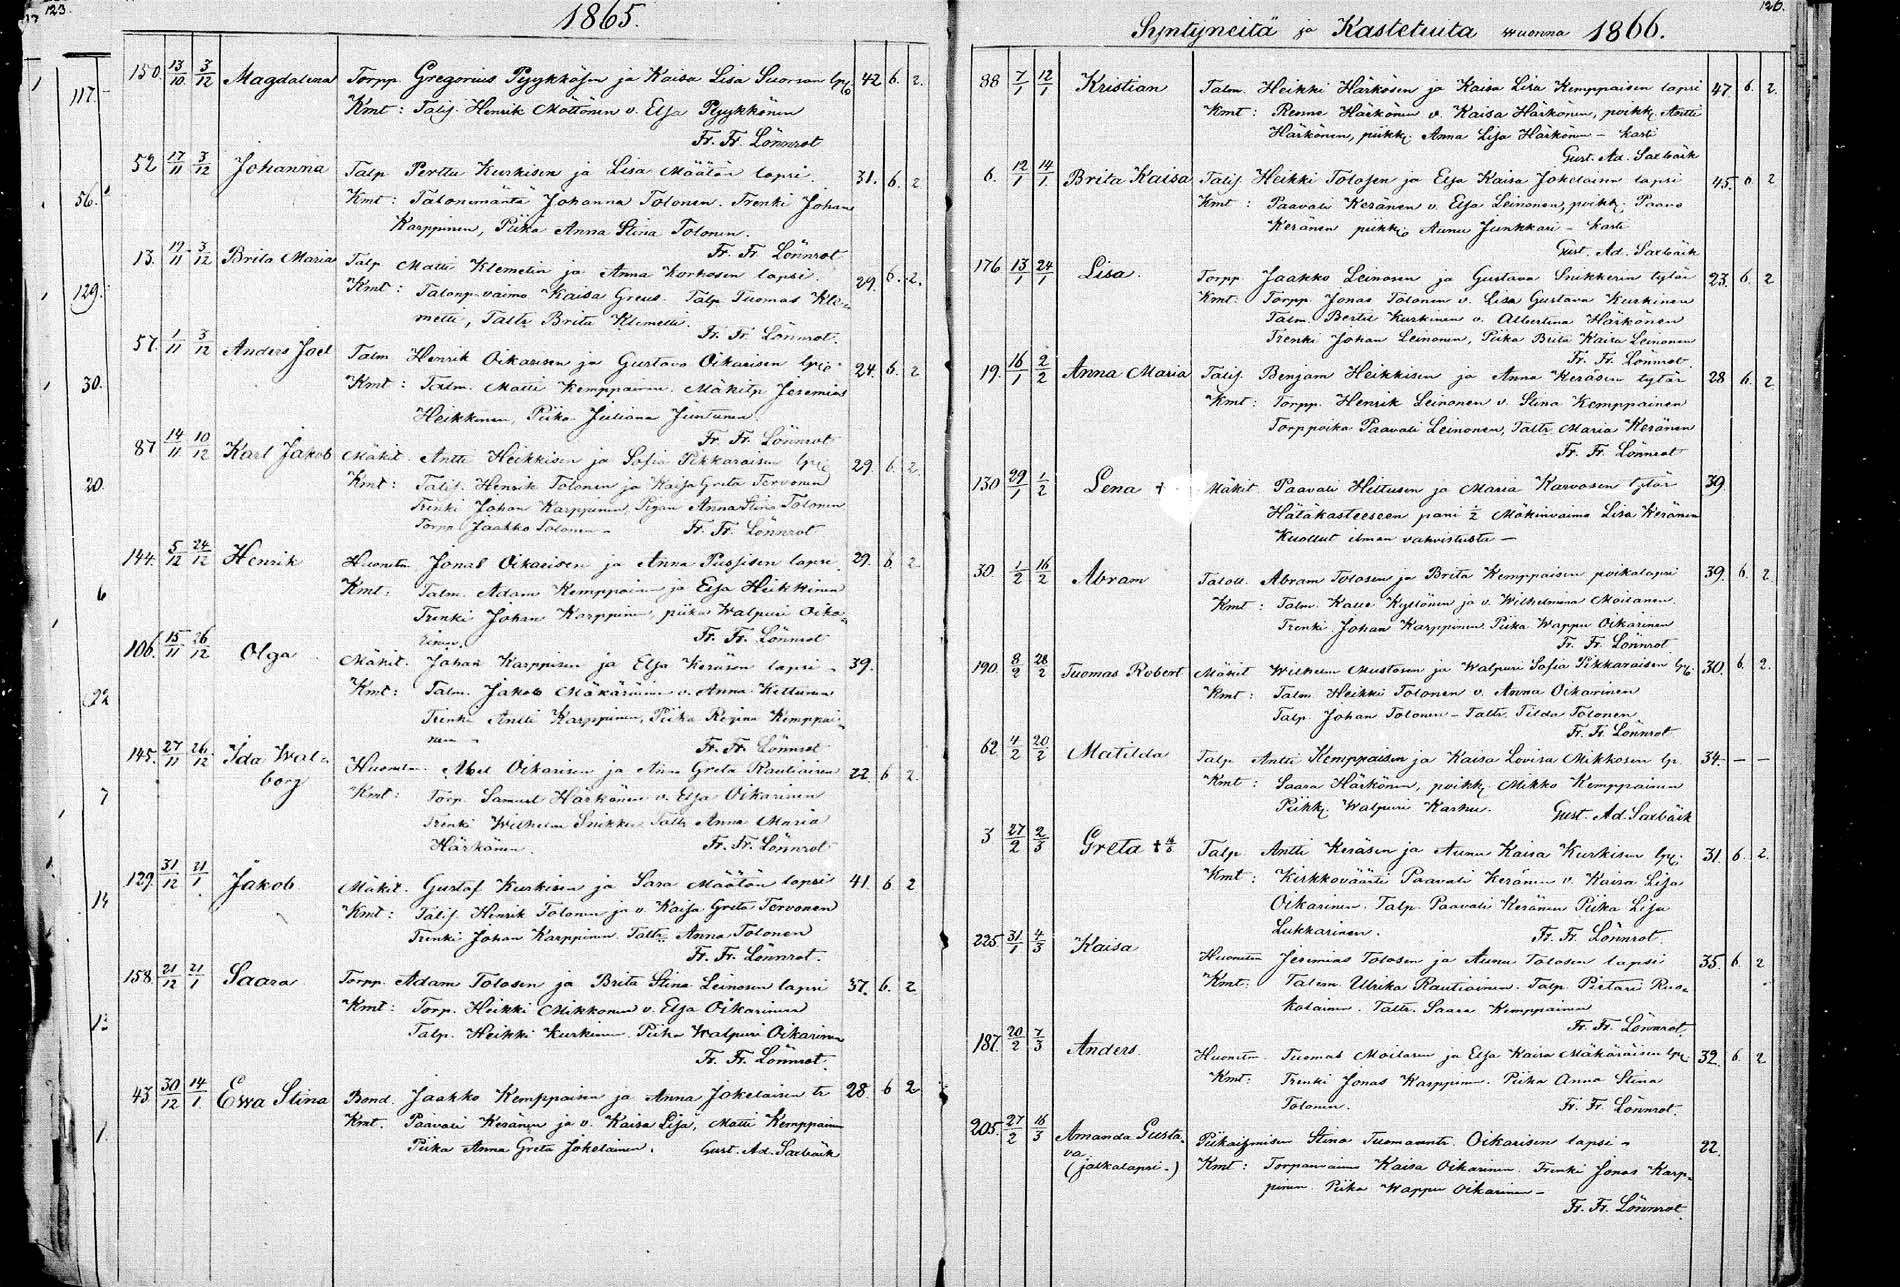 123.
1865.
117.
150. 13/10 3/12 Magdalena Torpp. Gregorius Pyykkösen ja Kaisa Lisa Suorsan lps 42 6. 2.
Kmt: Talij. Henrik Möttönen v. Elsa Pyykkönen
Fr. Fr. Lönnrot
56.
52 17/11 3/12 Johanna Talp Perttu Kurkisen ja Lisa Määtän lapsi. 31. 6. 2
Kmt: Talonemäntä Johanna Tolonen. Trenki Johan
Karppinen, Piika Anna Stina Tolonen.
Fr. Fr. Lönnrot
129.
13. 19/11 3/12 Brita Maria Talp Matti Klemetin ja Anna Korhosen lapsi 29. 6. 2.
Kmt: Talonp. vaimo Kaisa Greus. Talp Tuomas Kle-
metti, Taltr Brita Klemetti.
Fr. Fr. Lönnrot.
30.
57. 1/11 3/12 Anders Joel Talm Henrik Oikarisen ja Gustava Oikarisen lps 24. 6. 2
Kmt: Talm. Matti Kemppainen. Mäkitp Jeremias
Heikkinen, Piika Juliana Juntunen
Fr. Fr. Lönnrot
20.
87 14/11 10/12 Karl Jakob Mäkit. Antti Heikkisen ja Sofia Pikkaraisen lps 29. 6. 2
Kmt: Talij. Henrik Tolonen ja Kaisa Greta Tervonen
Trenki Johan Karppinen, Pigan Anna Stina Tolonen
Torpp Jaakko Tolonen - Fr. Fr. Lönnrot
6
144. 5/12 24/12 Henrik Huonetm. Jonas Oikarisen ja Anna Pussisen lapsi 29. 6. 2
Kmt: Talm. Adam Kemppainen ja Elsa Heikkinen
Trenki Johan Karppinen, piika Walpuri Oika-
rinen. Fr. Fr. Lönnrot
22
106. 15/11 26/12 Olga Mäkit. Johan Karppisen ja Elsa Keräsen lapsi - 39.
Kmt: Talm. Jakob Mäkäräinen v. Anna Kettunen
Trenki Antti Karppinen, Piika Regina Kemppai-
nen - Fr. Fr. Lönnrot
7
145. 27/11 26/12 Ida Wal-
borg Huonetm. Abel Oikarisen ja Anna Greta Rautiaisen 22 6 2
Kmt: Torp. Samuel Härkönen v. Elsa Oikarinen
Trenki Wilhelm Snikker Taltr Anna Maria
Härkönen. Fr. Fr. Lönnrot
14
129. 31/12 21/1 Jakob Mäkit. Gustaf Kurkisen ja Sara Määtän lapsi 41. 6 2
Kmt: Talij. Henrik Tolonen ja v. Kaisa Greta Tervonen
Trenki Johan Karppinen. Taltr. Anna Tolonen
Fr. Fr. Lönnrot.
13
158. 21/12 21/1 Saara Torpp. Adam Tolosen ja Brita Stina Leinosen lapsi 37. 6. 2
Kmt: Torp. Heikki Mikkonen v. Elsa Oikarinen
Talp. Heikki Kurkinen. Piika Walpuri Oikarinen
Fr. Fr. Lönnrot.
1.
43 30/12 14/1 Ewa Stina Bond. Jaakko Kemppaisen ja Anna Jokelaisen tr 28. 6 2
Kmt. Paavali Keränen ja v. Kaisa Lisa, Matti Kemppainen
Piika Anna Greta Jokelainen. Gust. Ad. Saxbäck
126.
Syntyneitä ja Kastetuita wuonna 1866.
88 7/1 12/1 Kristian Talm. Heikki Härkösen ja Kaisa Lisa Kemppaisen lapsi 47. 6. 2.
Kmt: Renne Härkönen v. Kaisa Härkönen, poikk. Antti
Härkönen, piikk. Anna Lisa Härkönen - kasti
Gust. Ad. Saxbäck
6. 12/1 14/1 Brita Kaisa Talij. Heikki Tolosen ja Elsa Kaisa Jokelainen lapsi 45. 6 2
Kmt: Paavali Keränen v. Elsa Leinonen, poikk. Paavo
Keränen piikk. Aunu Junkkari - kasti
Gust. Ad. Saxbäck
176 13/1 24/1 Lisa. Torpp Jaakko Leinosen ja Gustava Snikkerin tytär 23. 6. 2
Kmt. Torpp. Jonas Tolonen v. Lisa Gustava Kurkinen
Talm. Bertel Kurkinen v. Albertina Härkönen
Trenki Johan Leinonen, Piika Brita Kaisa Leinonen
Fr. Fr. Lönnrot
19. 16/1 2/2 Anna Maria Talij. Benjam Heikkisen ja Anna Keräsen tytär 28 6. 2
Kmt: Torpp. Henrik Leinonen v. Stina Kemppainen
Torppoika Paavali Leinonen, Taltr Maria Keränen
Fr. Fr. Lönnrot
130 29/1 1/2 Lena † Mäkit Paavali Heitusen ja Maria Karvosen tytär 39
Hätäkasteeseen pani 1/2 Mäkinvaimo Lisa Keränen
Kuollut ilman vahvistusta -
30. 1/2 16/2 Abram Taloll. Abram Tolosen ja Brita Kemppaisen poikalapsi 39. 6. 2
Kmt: Talm. Kalle Kyllönen ja v. Wilhelmina Moilanen.
Trenki Johan Karppinen Piika Wappu Oikarinen
Fr. Fr. Lönnrot.
190. 8/2 28/2 Tuomas Robert Mäkit Wilhelm Mustosen ja Walpuri Sofia Pikkaraisen lps. 30. 6. 2.
Kmt: Talm. Heikki Tolonen v. Anna Oikarinen
Talp. Johan Tolonen - Taltr. Tilda Tolonen
Fr. Fr. Lönnrot
62 4/2 20/2 Matilda Talp Antti Kemppaisen ja Kaisa Lovisa Mikkosen lp. 34. - -
Kmt: Saara Härkönen, poikk. Mikko Kemppainen
Piikk. Walpuri Karhu. Gust. Ad. Saxbäck
3 27/2 2/3 Greta † Talp Antti Keräsen ja Aunu Kaisa Kurkisen lps. 31. 6. 2.
Kmt: Kirkkoväärti Paavali Keränen v. Kaisa Lisa
Oikarinen. Talp. Paavali Keränen Piika Lisa
Lukkarinen. Fr. Fr. Lönnrot.
225. 31/1 4/3 Kaisa Huonetm Jeremias Tolosen ja Aunu Tolosen lapsi 35. 6. 2
Kmt: Talem. Ulrika Rautiainen. Talp. Pietari Ruo-
kolainen. Taltr. Saara Kemppainen
Fr. Fr. Lönnrot
187. 20/2 7/3 Anders. Huonetm. Tuomas Moilasen ja Elsa Kaisa Mäkäräisen lps 32. 6. 2
Kmt: Trenki Jonas Karppinen. Piika Anna Stina
Tolonen. Fr. Fr. Lönnrot.
205. 27/2 16/3 Amanda Gusta-
va
(jalkalapsi-) Piikaihmisen Stina Tuomaantr. Oikarisen lapsi - 22.
Kmt: Torpanvaimo Kaisa Oikarinen. Trenki Jonas Karp-
pinen. Piika Wappu Oikarinen -
Fr. Fr. Lönnrot.